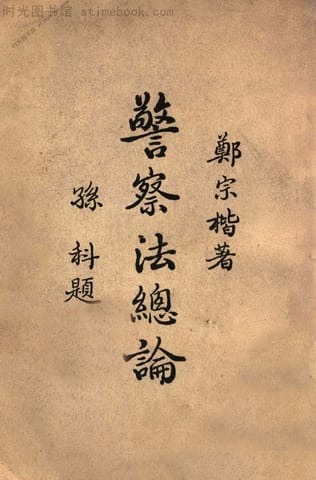 时光图书馆 atimebook.com
鄭宗楷著
警察法總論
孫科題